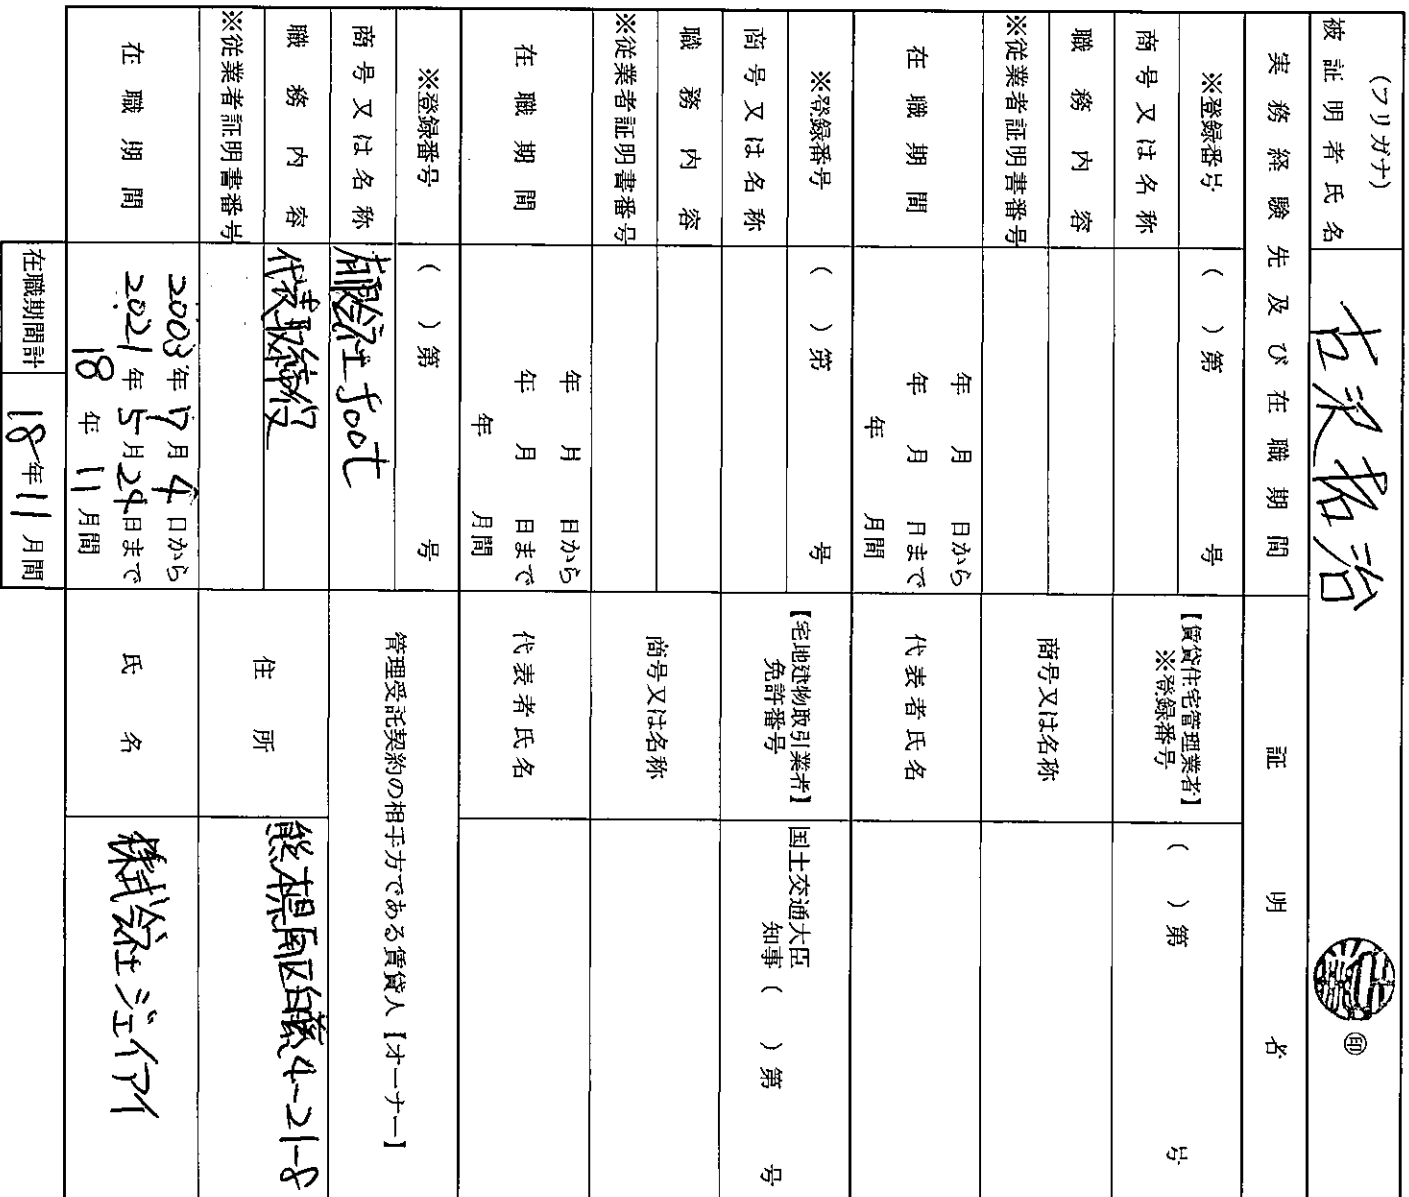 (フリガナ)
被証明者氏名 古沢拓治 ㊞
実務経験先及び在職期間 証明者
※登録番号 ( )第 号 【賃貸住宅管理業者】※登録番号 ( )第 号
商号又は名称
職務内容 商号又は名称
※従業者証明書番号
在職期間 年 月 日から
年 月 日まで
年 月間 代表者氏名
※登録番号 ( )第 号 【宅地建物取引業者】免許番号 国土交通大臣
知事( )第 号
商号又は名称
職務内容 商号又は名称
※従業者証明書番号
在職期間 年 月 日から
年 月 日まで
年 月間 代表者氏名
※登録番号 ( )第 号 管理受託契約の相手方である賃貸人【オーナー】
商号又は名称 有限会社foot
職務内容 代表取締役 住所 熊本県南区白藤4-21-8
※従業者証明書番号
在職期間 2003年7月4日から
2021年5月24日まで
18年11月間 氏名 株式会社ジェイアイ
在職期間計 18年11月間